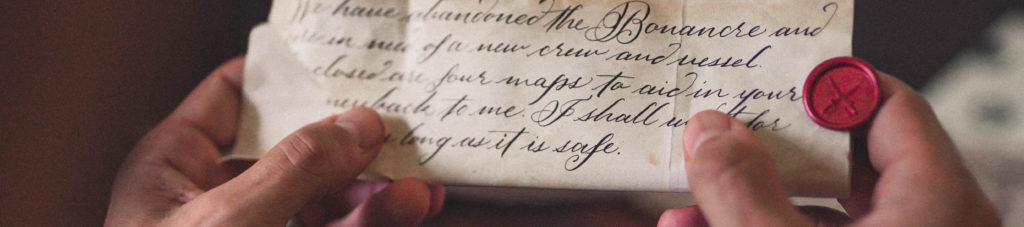 We have abandoned the Bonancre and
are in need of a new crew and vessel.
closed are four maps to aid in your
back to me. I shall wait for
long as it is safe.